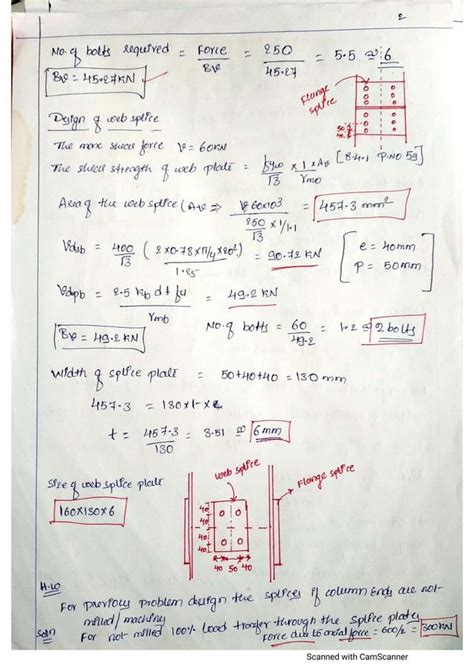 2
No. of bolts required = Force / Bv = 250 / 45.27 = 5.5 ≅ 6
Bv = 45.27 KN
Flange splice
50
40
Design of web splice
The max shear force V = 60KN
The shear strength of web plate = fyw / √3 × 1 × Av / γmo [8.4.1 P.NO 59]
Area of the web splice (Av ⇒ V 60×10³ / 250/√3 × 1/1.1 = 457.3 mm²
Vdsb = 400 / √3 (2×0.78×π/4×20²) / 1.25 = 90.72 KN
e = 40mm
P = 50mm
Vdpb = 2.5 Kb d t fu / γmb = 49.2 KN
Bv = 49.2 KN
No. of bolts = 60 / 49.2 = 1.2 ≅ 2 bolts
Width of splice plate = 50+40+40 = 130 mm
457.3 = 130×1-×t
t = 457.3 / 130 = 3.51 ≅ 6mm
web splice
Flange splice
Size of web splice plate
160×130×6
40
40
40
40
40 50 40
H.W
For previous problem design the splices if column ends are not-
milled/ machining
Soln
For not milled 100% load tranfer through the splice plates
Force due to axial force = 600/2 = 300KN
Scanned with CamScanner